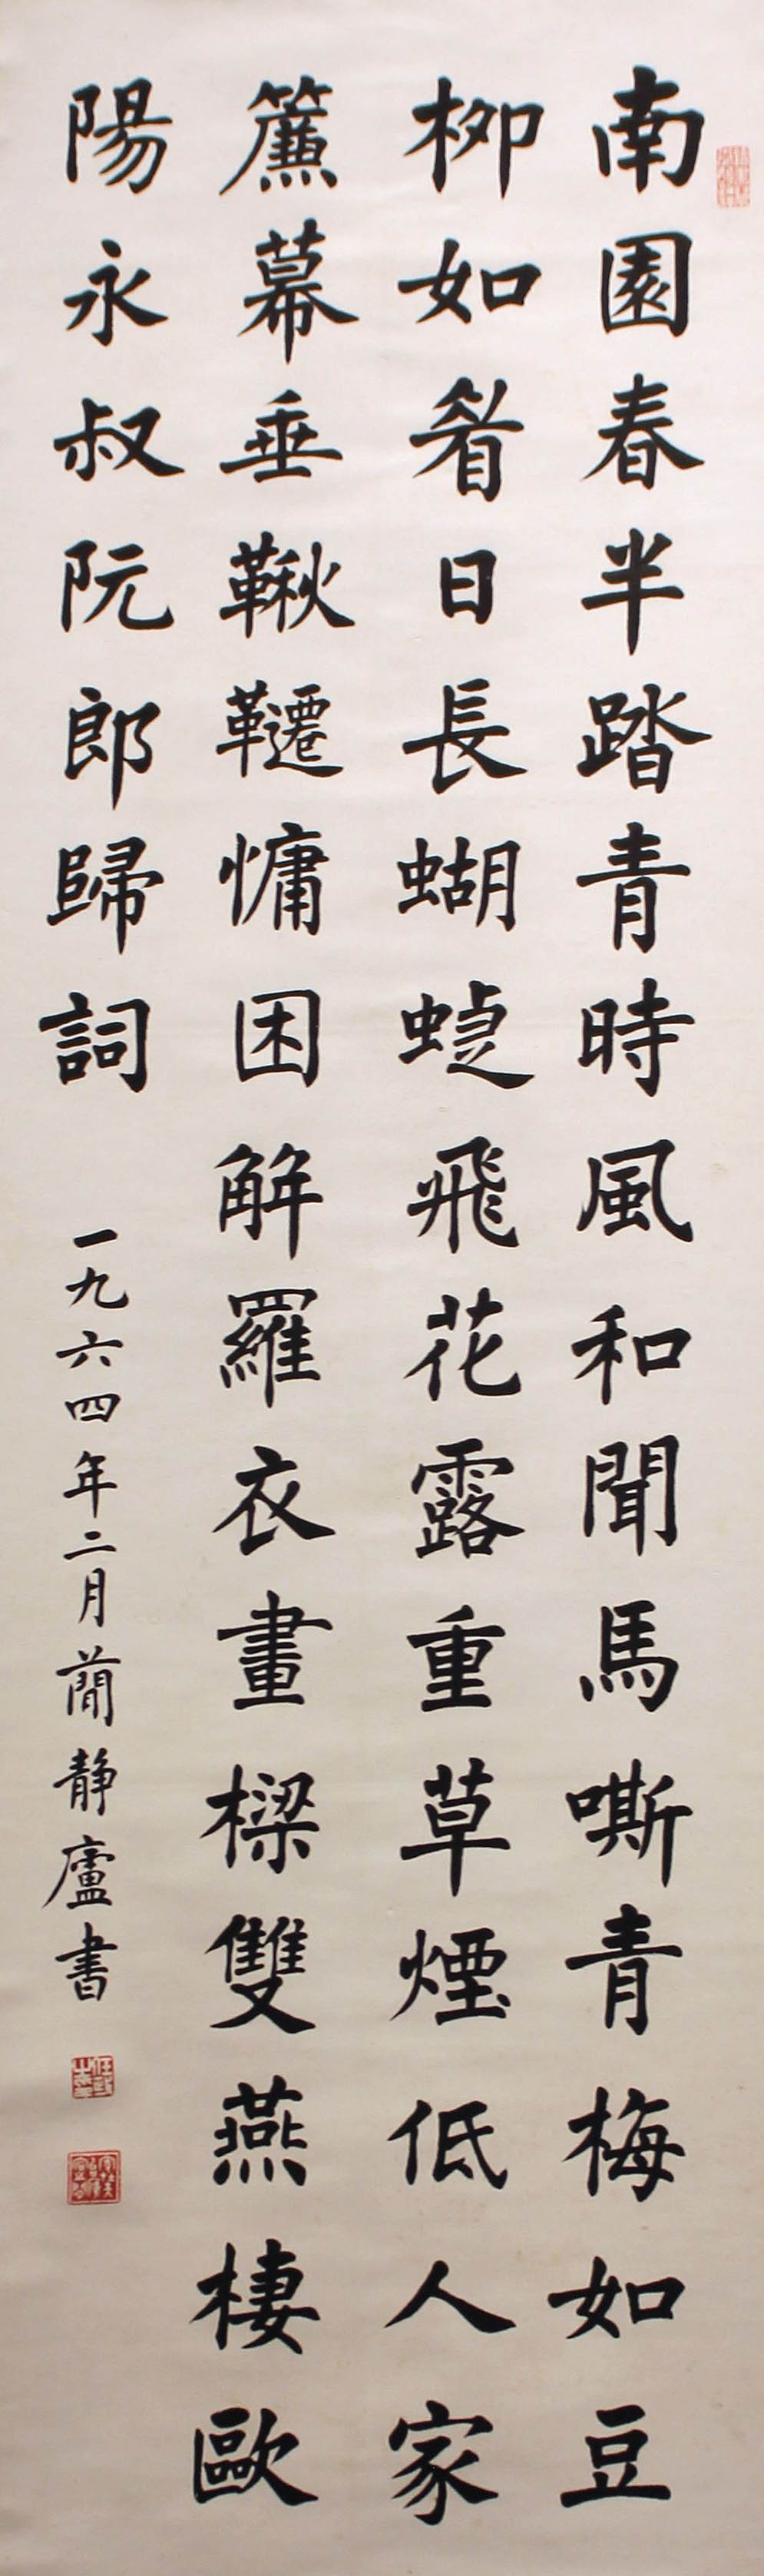 南園春半踏青時風和聞馬嘶青梅如豆
柳如眉日長蝴蜨飛花露重草煙低人家
簾幕垂鞦韆慵困解羅衣畫樑雙燕棲歐
陽永叔阮郎歸詞 一九六四年二月簡靜廬書